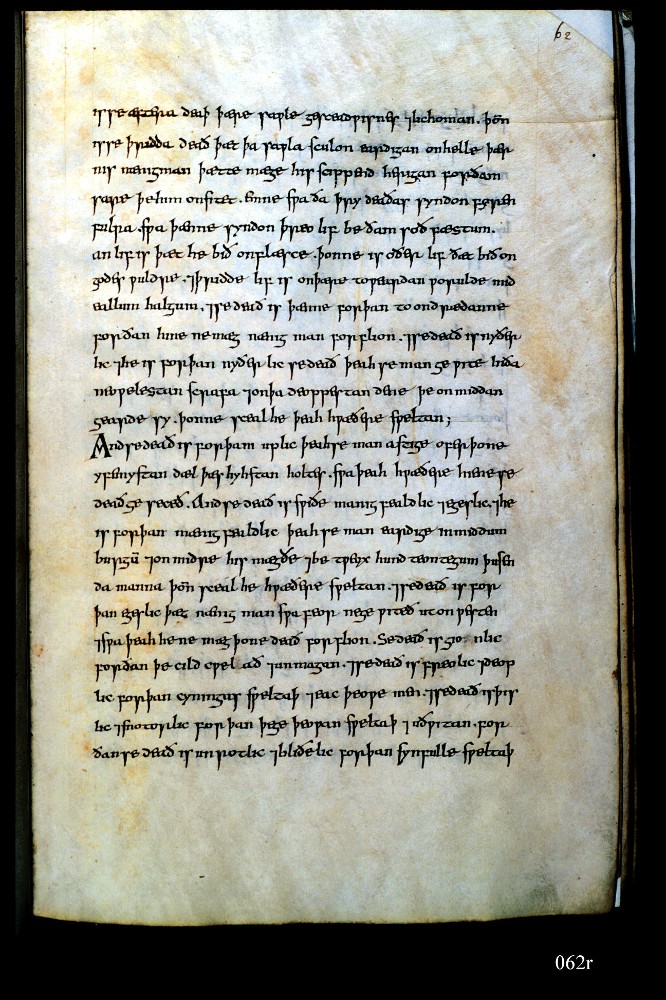 62
is se æfterra deaþ þære saple gesceadpisnes ⁊ lichoman. þoñ
is se þridda deað þæt þa sapla sculon eardigan on helle þær
nis nænig man þætte mæge his scippend herigan forðam
sare þe him onsitet. Ænne spa ða þry deaðas syndon feren
fulra. spa þænne syndon þreo lif be ðam soðfæstum.
an lif is þæt he bið on flæsce. þonne is oðer lif ðæt bið on
godes puldre. ⁊ þridde lif is on þære topeardan porulde mid
eallum halgum. ⁊ se deað is þænne forþan to ondrædanne
forðan hine ne mæg nænig man forflion. ⁊ se deað is nyðer
lic ⁊ he is forþan nyðerlic se deað þeah se man ge pite bida
neopelestan scrafa ⁊ on þa deoppestan dene þe on middan
gearde sy. þonne sceal he þeah hpæðere speltan;
And se deað is forþam uplic þeah se man astige ofer þone
yfemystan dæl þæs hyhstan holtes. spa þeah hpæðere hine se
deað ge seceð. And se deað is spiðe mænigfealdlic ⁊ egeslic. ⁊ he
is forþan mænigfealdlic þeah se man eardige in middum
burgū ⁊ on midre his mægðe ⁊ be tpeyx hund teontegum þusen
da manna þoñ sceal he hpæðere speltan. ⁊ se deað is for
þan egeslic þæt nænig man spa feor ne ge piteð ut on pesten
⁊ spa þeah he ne mæg þone deað forflion. Se deað is gio nlic
forðan þe cild cpelað ⁊ iunmagan. ⁊ se deað is freolic ⁊ deop
lic forþan cyningas speltaþ ⁊ eac þeope men. ⁊ se deað is þis
lic ⁊ snotorlic forþan þege þeopan speltaþ ⁊ uðpitan. for
ðan se deað is unrotlic ⁊ bliðelic forþan synfulle speltaþ
062r